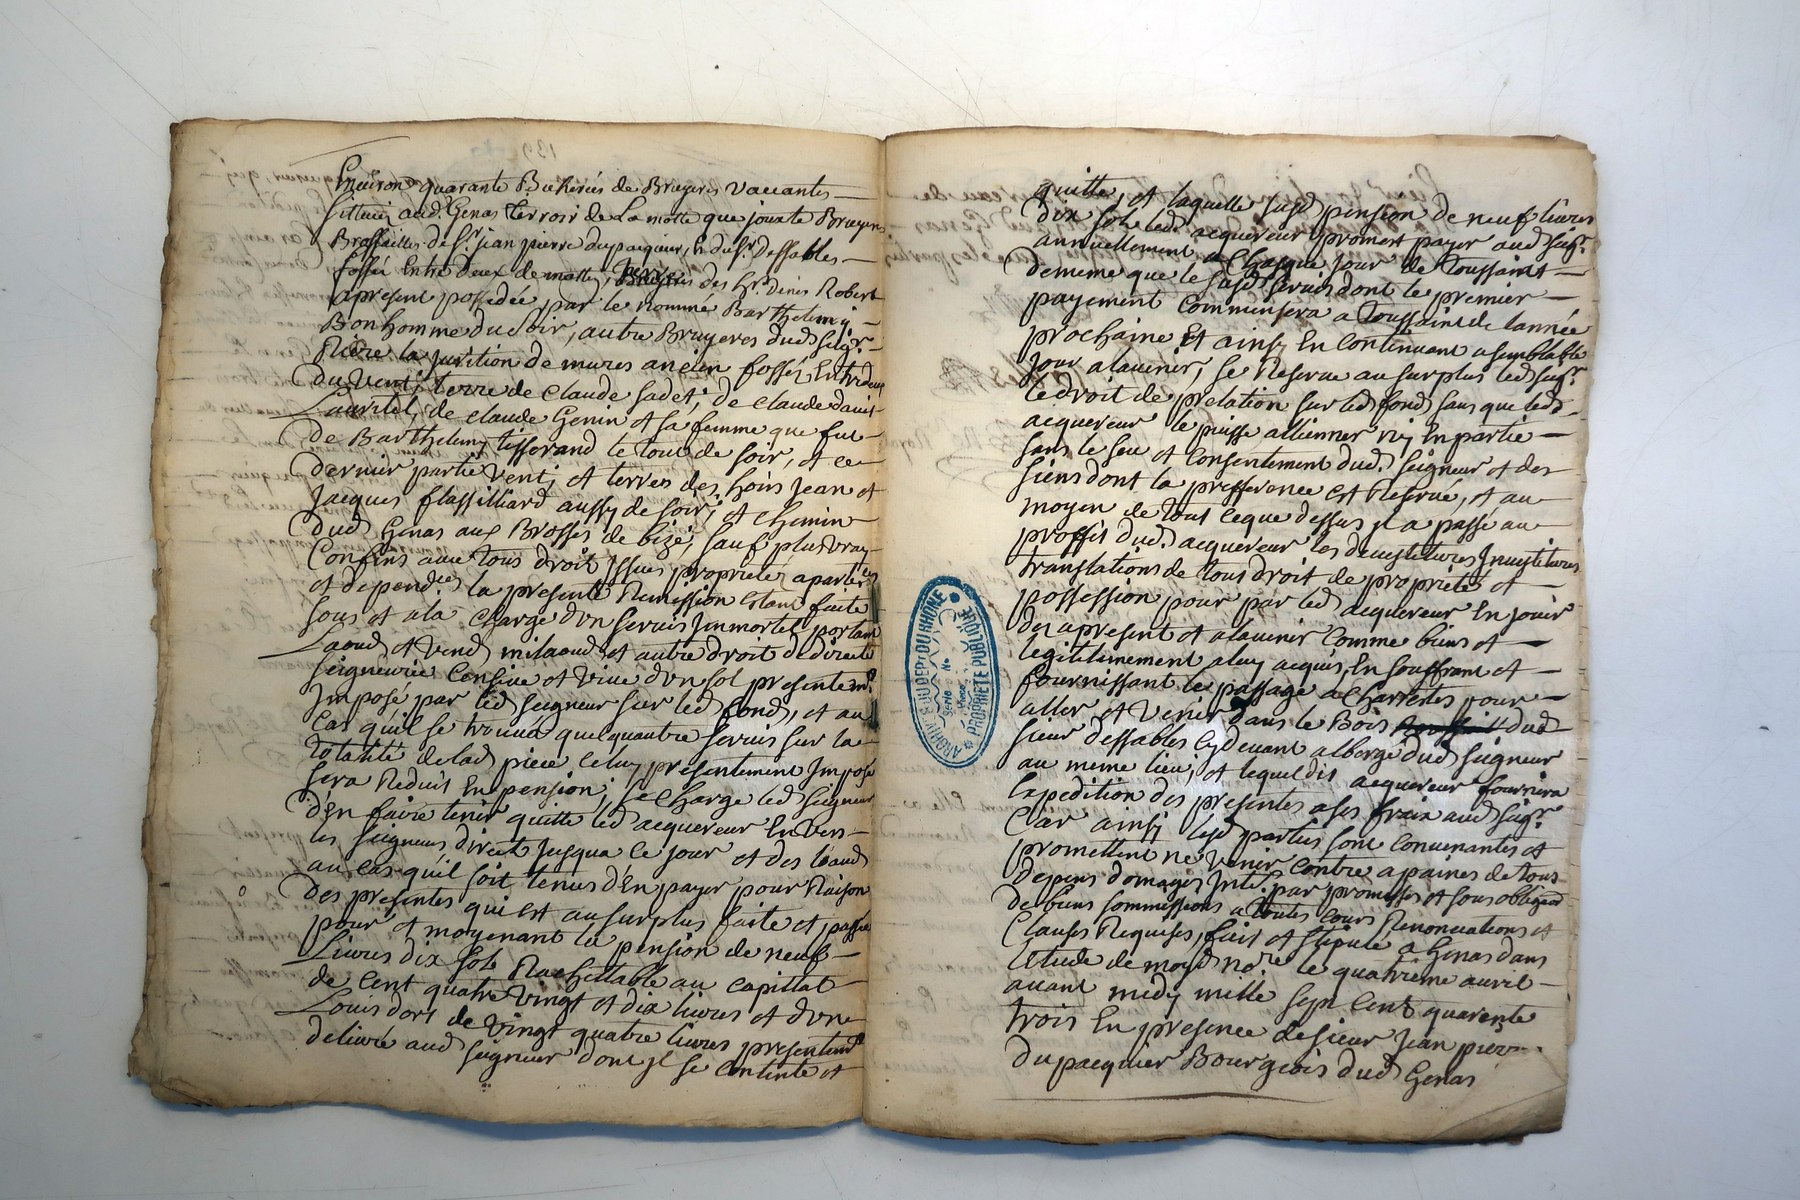 Environ quarante Bicherées de Bruyeres vacantes
sittuée aud. Genas terroir de La motte que jouxte Bruyeres
Brossailles de Sr. jean pierre dupacquier, & du Sr. Dessables
fossé Entre deux de matin, Bruyeres des hrs. Denis Robert
apresent possedée par le nommé Barthelemy
Bonhomme du soir, autre Bruyeres dud Seigr.
Riere la juridition de mures ancien fossé Entredeux
du vent, terre de Claude Sadet, de claude david
Lauritel, de claude Genin et sa femme que fut
de Barthelemy tisserand le tout de soir, et ce
dernier partie vent, et terres des hoirs Jean et
Jacques flassilliard aussy de soir, et chemin
dud Genas aux Brosses de bize, sauf plus vray
Confins avec tous droit issues proprietés apartces
et dependces la presente Remission etant faite
sous et a la charge d'un servis Immortel portant
Laouds et vends milaods et autre droit de directe
seigneurie Censive et vive d'un sol presentemt.
Imposé par led seigneur sur led fonds, et au
Cas qu'il se trouva quelquautre servis sur la
totalité de lad piece celuy presentement Imposé
sera Reduit En pension, se charge led Seigneur
d'En faire tenir quitte led acquereur Envers
les seigneurs direct Jusqua ce jour et des laouds
au cas qu'il soit tenus d'En payer pour Raison
des presentes qui est au surplus faite et passée
pour et moyenant la pension de neuf
Livres dix sols Rachettable au capittal
de Cent quatre vingt et dix livres et d'une
Louis d'ors de vingt quatre livres presentemt
delivré aud seigneur dont il se contente et
quitte, et laquelle susd pension de neuf livres
dix sols led acquereur promest payer aud Seigr.
annuellement a chasque jour de Toussaint
de meme que le susd servis dont le premier
payement commensera a Toussaint de l'année
prochaine Et ainsy En continuant a semblable
jour a lavenir, se Reserve au surplus led Seigr.
le droit de prelation sur led fond sans que led
acquereur le puisse allienner ny En partie
sans le seu et consentement dud. seigneur et des
siens dont la presference est Reservé, et au
moyen de tout ce que dessus il a passé au
proffit dud. acquereur les devestitures Investitures
translations de tous droit de proprieté et
possession pour par led acquereur En jouir
dez apresent et a lavenir Comme biens et
legitimement a luy acquis, En souffrant et
fournissant le passage a charrettes pour
aller et venir dans le Bois dud
sieur dessables cydevant albergé dud seigneur
au meme lieu, et lequel dit acquereur fournira
Expedition des presentes a ses fraix aud Seigr.
Car ainsy lesd parties sont convenantes et
promettent ne venir Contre a paines de tous
depens domages Intets. par promesses et sous obligaon
de biens sommissions a toutes Cours Renonciations et
Clauses Requises, fait et stipulé a Genas dans
l'étude de moyd nore. le quatrieme avril
avant midy mille sept Cent quarente
trois En presence de sieur Jean pierre
dupacquier Bourgeois dud Genas
ARCHIVES DU DEPT DU RHÔNE
PROPRIÉTÉ PUBLIQUE